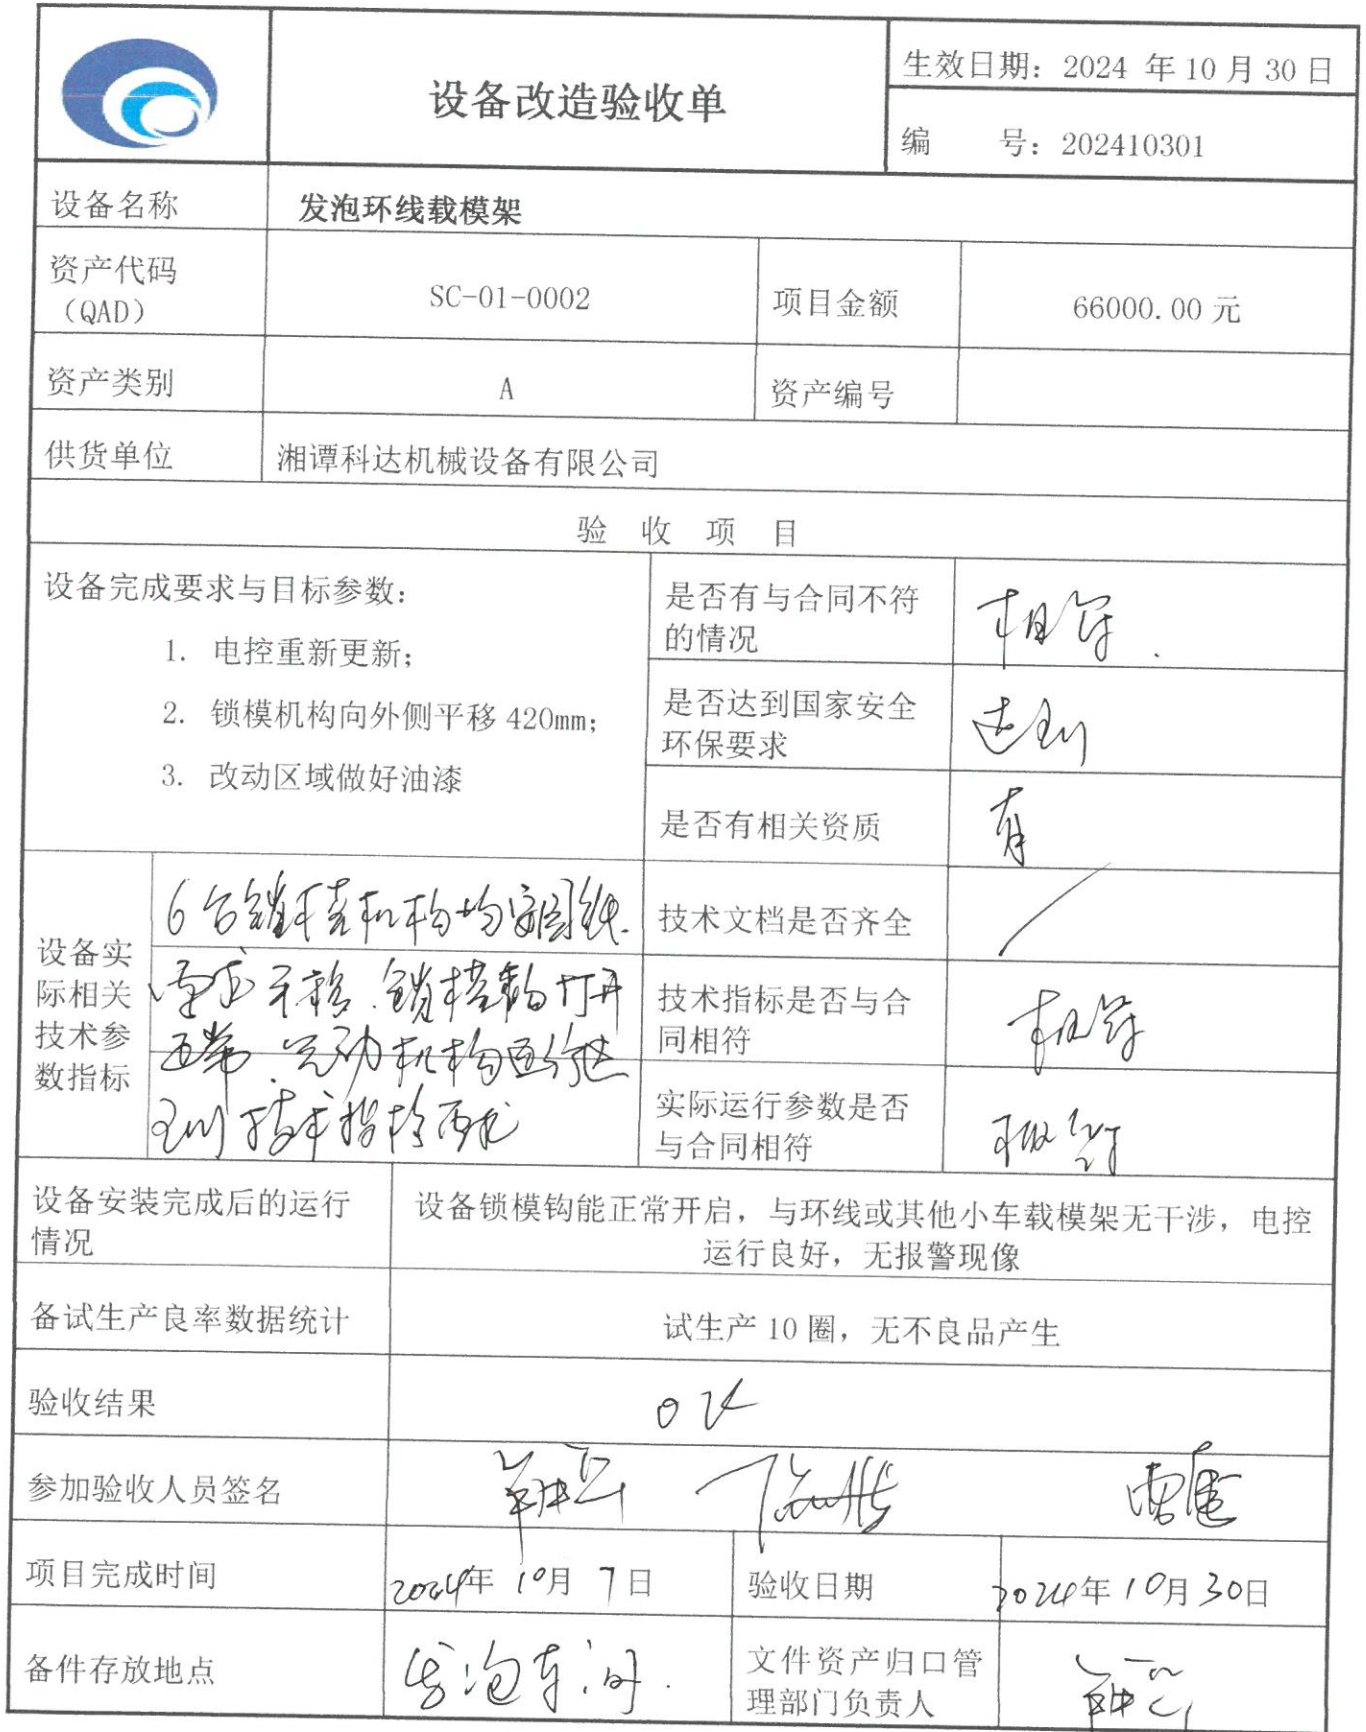 设备改造验收单
生效日期：2024 年 10 月 30 日
编 号：202410301
设备名称
发泡环线载模架
资产代码
（QAD）
SC-01-0002
项目金额
66000.00 元
资产类别
A
资产编号
供货单位
湘谭科达机械设备有限公司
验 收 项 目
设备完成要求与目标参数：
1. 电控重新更新；
2. 锁模机构向外侧平移 420mm；
3. 改动区域做好油漆
是否有与合同不符
的情况
相符
是否达到国家安全
环保要求
达到
是否有相关资质
有
设备实
际相关
技术参
数指标
6台锁模机构均按图纸
要求平移.锁模钩打开
正常.运动机构运行达
到技术指标要求
技术文档是否齐全
技术指标是否与合
同相符
相符
实际运行参数是否
与合同相符
相符
设备安装完成后的运行
情况
设备锁模钩能正常开启，与环线或其他小车载模架无干涉，电控
运行良好，无报警现像
备试生产良率数据统计
试生产 10 圈，无不良品产生
验收结果
OK
参加验收人员签名
项目完成时间
2024年 10月 7日
验收日期
2024年10月30日
备件存放地点
发泡车间.
文件资产归口管
理部门负责人